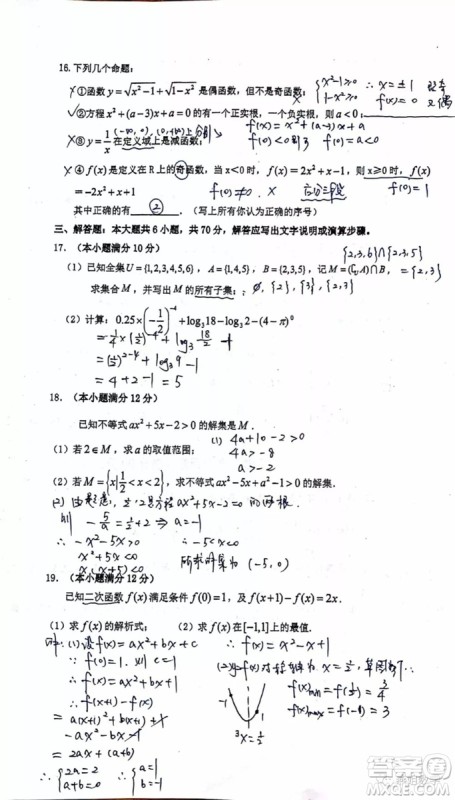 16.下列几个命题:
×①函数 y=√(x²-1)+√(1-x²) 是偶函数,但不是奇函数; {x²-1≥0 1-x²≥0 ∴x=±1 f(x)=0
✓②方程 x²+(a-3)x+a=0 的有一个正实根,一个负实根,则 a<0;
f(x)=x²+(a-3)x+a
×③ y=1/x 在定义域上是减函数; (-∞,0),(0,+∞)上 f(0)<0 f(0)=a<0
×④ f(x) 是定义在 R 上的奇函数,当 x<0 时,f(x)=2x²+x-1,则 x≥0 时,f(x)
=-2x²+x+1 f(0)≠0. × f(0)=1
其中正确的有 ② .(写上所有你认为正确的序号)
三、解答题:本大题共 6 小题,共 70 分,解答应写出文字说明或演算步骤。
17.(本小题满分 10 分)
{2,3,6}∩{2,3,5}
(1)已知全集 U={1,2,3,4,5,6},A={1,4,5},B={2,3,5},记 M=(∁ᵤA)∩B, ={2,3}
求集合 M,并写出 M 的所有子集; ∅,{2},{3},{2,3}
(2)计算:0.25×(-1/2)⁻⁴+log₃18-log₃2-(4-π)⁰
=1/4×(1/2)⁻⁴+log₃ 18/2 -1
=(1/2)²⁻⁴+log₃9-1
=4+2-1=5
18.(本小题满分 12 分)
已知不等式 ax²+5x-2>0 的解集是 M.
(1)若 2∈M,求 a 的取值范围; (1) 4a+10-2>0
4a>-8
a>-2
(2)若 M={x|1/2<x<2},求不等式 ax²-5x+a²-1>0 的解集
(2)由题意,1/2,2是方程ax²+5x-2=0的两根.
则 -5/a=1/2+2⇒a=-1
∴-x²-5x>0 ∴-5<x<0
x²+5x<0 所求解集为(-5,0)
x(x+5)<0
19.(本小题满分 12 分)
已知二次函数 f(x) 满足条件 f(0)=1,及 f(x+1)-f(x)=2x.
(1)求 f(x) 的解析式; (2)求 f(x) 在 [-1,1] 上的最值.
解:(1)设f(x)=ax²+bx+c ∴f(x)=x²-x+1
∵f(0)=1.则c=1 (2)y=f(x)对称轴为x=1/2,草图如下:
∴f(x)=ax²+bx+1 f(x)min=f(1/2)=3/4
f(x+1)-f(x) f(x)max=f(-1)=3
=a(x+1)²+b(x+1)+1 -1 1
-ax²-bx-1 x=1/2
=2ax+(a+b)
∴{2a=2 a+b=0 ∴{a=1 b=-1
答案圈